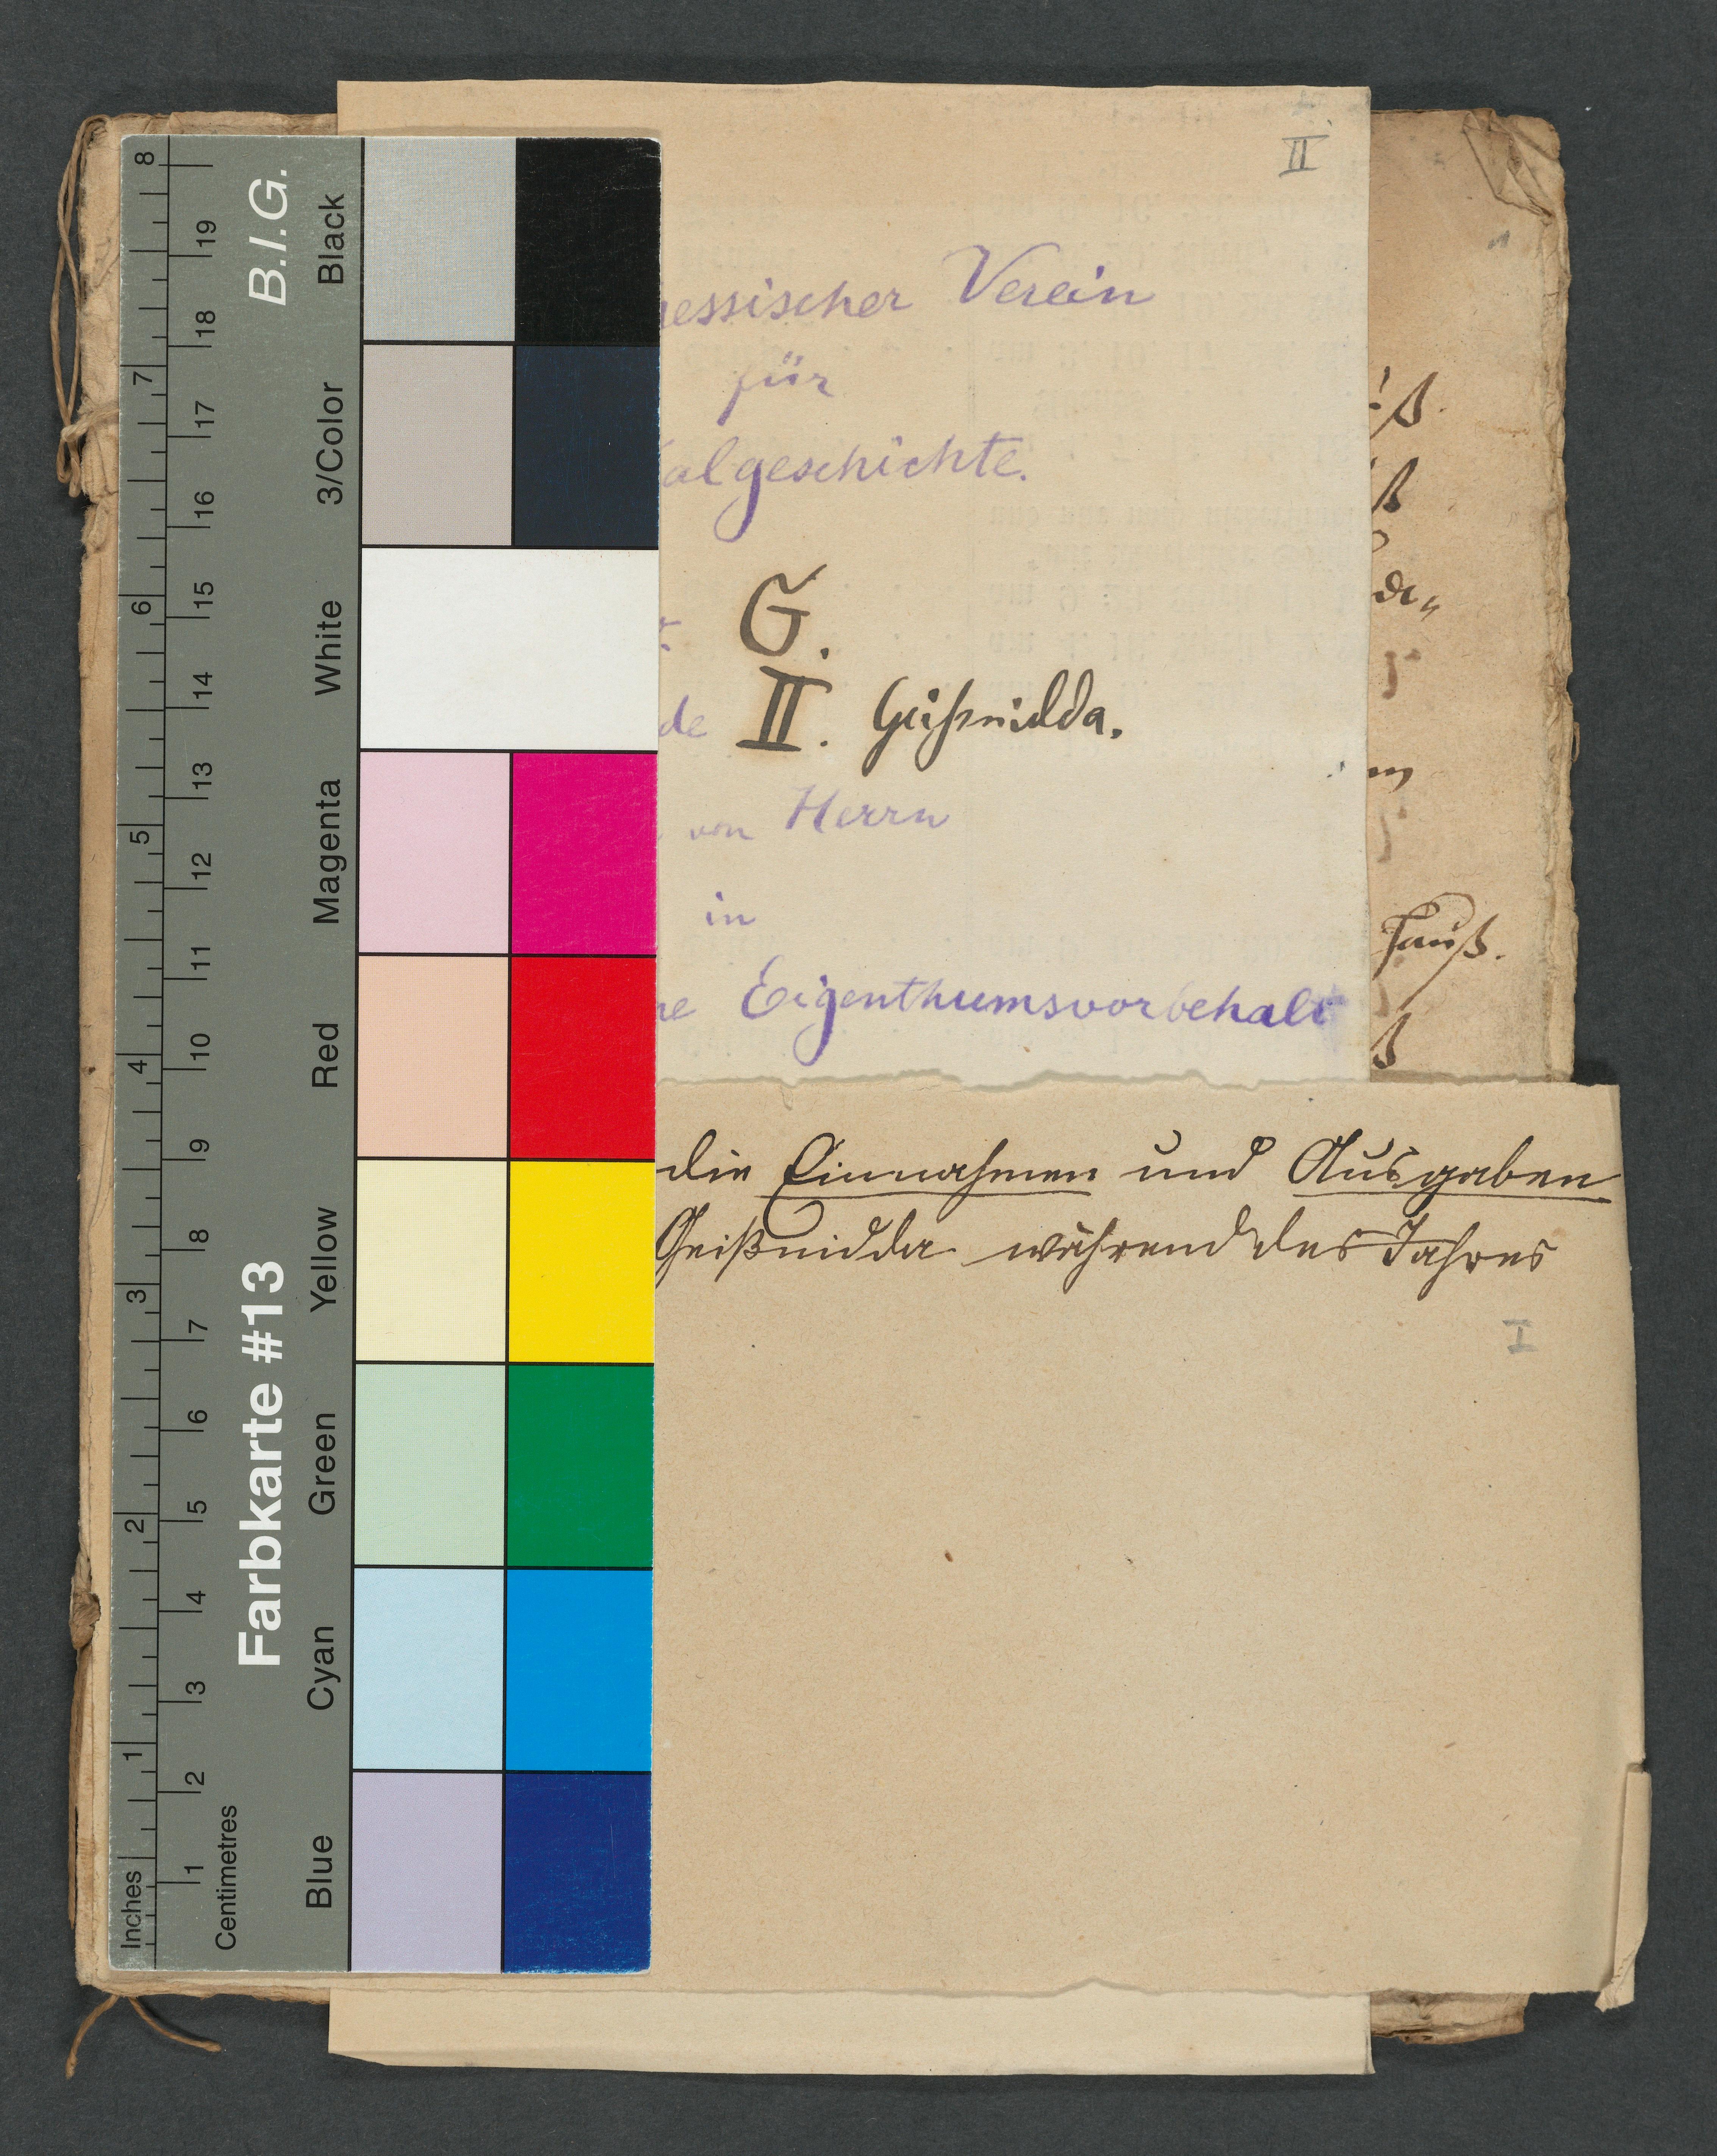 II
essischer Verein
für
algeschichte.
G.
de II. Geißnidda.
von Herrn
in
ne Eigenthumsvorbehalt
die Einnahmen und Ausgaben
Geißnidda während des Jahres
I
B.I.G.
Farbkarte #13
Black
3/Color
White
Magenta
Red
Yellow
Green
Cyan
Blue
Inches
1 2 3 4 5 6 7 8
Centimetres
1 2 3 4 5 6 7 8 9 10 11 12 13 14 15 16 17 18 19